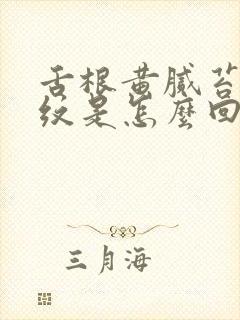 舌根黄腻苔
纹是怎麼回
三月海